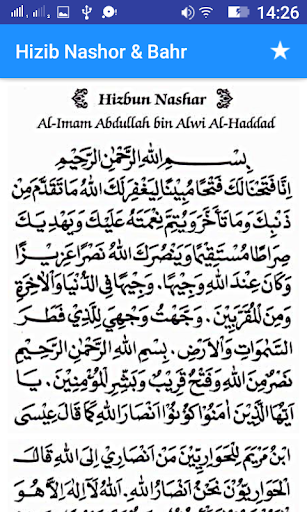 14:26
Hizib Nashor & Bahr
Hizbun Nashar
Al-Imam Abdullah bin Alwi Al-Haddad
بِسْمِ اللهِ الرَّحْمٰنِ الرَّحِيْمِ
اِنَّا فَتَحْنَا لَكَ فَتْحًا مُبِيْنًا لِيَغْفِرَ لَكَ اللهُ مَا تَقَدَّمَ مِنْ
ذَنْبِكَ وَمَا تَأَخَّرَ وَيُتِمَّ نِعْمَتَهُ عَلَيْكَ وَيَهْدِيَكَ
صِرَاطًا مُسْتَقِيْمًا وَيَنْصُرَكَ اللهُ نَصْرًا عَزِيْزًا
وَكَانَ عِنْدَ اللهِ وَجِيْهًا، وَجِيْهًا فِي الدُّنْيَا وَالْاٰخِرَةِ
وَمِنَ الْمُقَرَّبِيْنَ، وَجَّهْتُ وَجْهِيَ لِلَّذِيْ فَطَرَ
السَّمٰوَاتِ وَالْاَرْضَ، بِسْمِ اللهِ الرَّحْمٰنِ الرَّحِيْمِ
نَصْرٌ مِنَ اللهِ وَفَتْحٌ قَرِيْبٌ وَبَشِّرِ الْمُؤْمِنِيْنَ، يَا
اَيُّهَا الَّذِيْنَ اٰمَنُوْا كُوْنُوْا اَنْصَارَ اللهِ كَمَا قَالَ عِيْسَى
ابْنُ مَرْيَمَ لِلْحَوَارِيِّيْنَ مَنْ اَنْصَارِيْ اِلَى اللهِ قَالَ
الْحَوَارِيُّوْنَ نَحْنُ اَنْصَارُ اللهِ. اَللهُ لَآ اِلٰهَ اِلَّا هُوَ